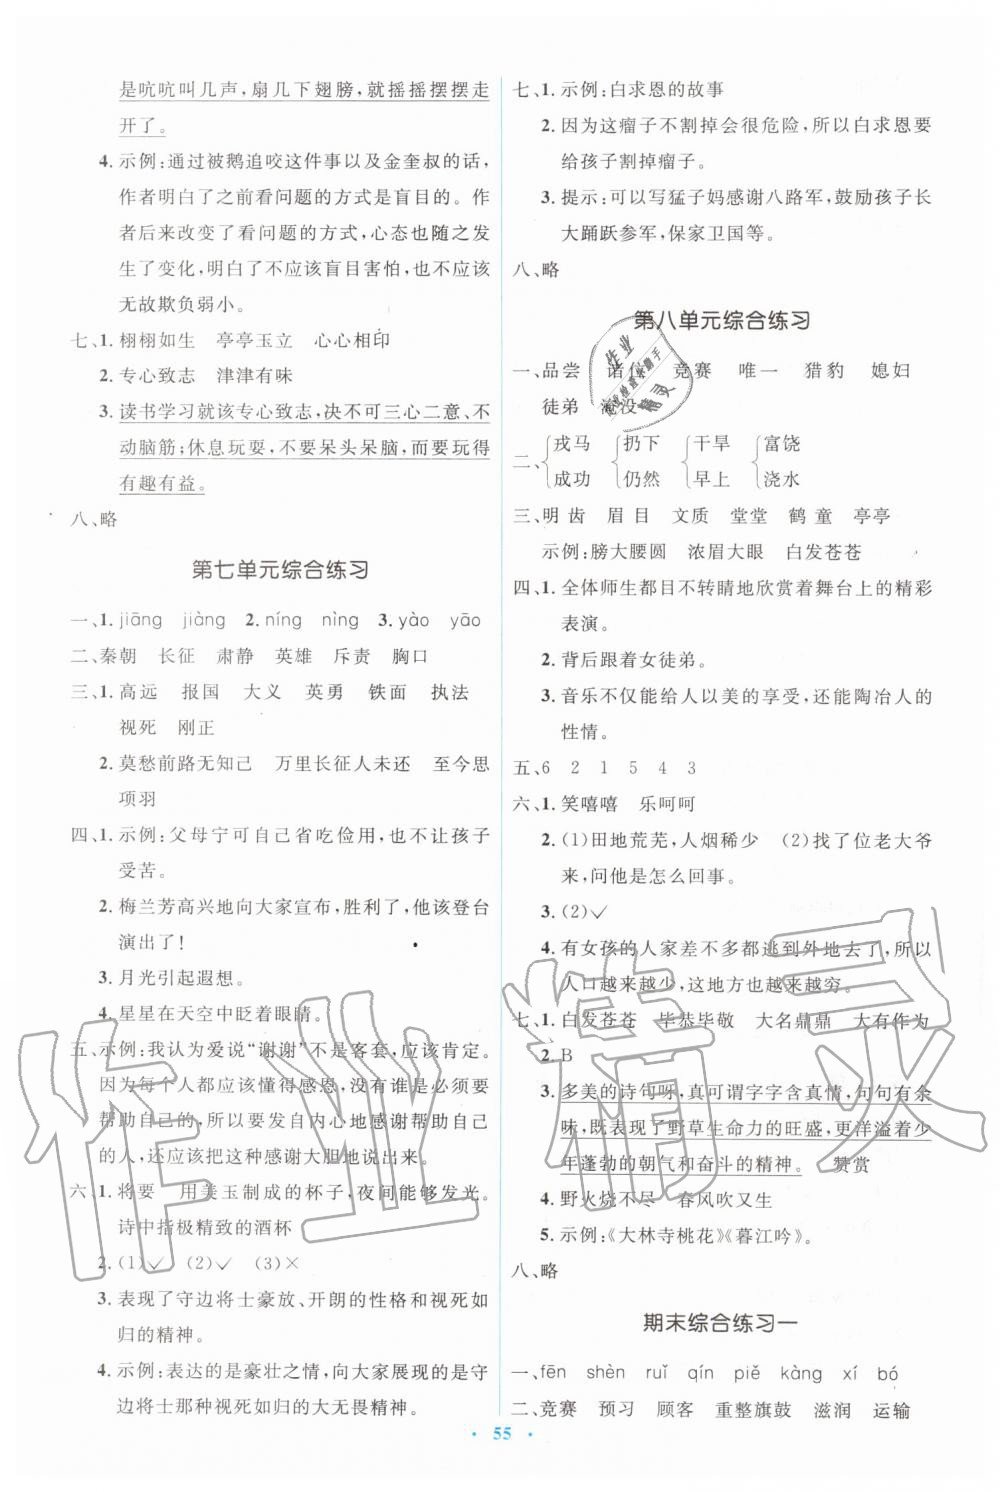 是吭吭叫几声,扇几下翅膀,就摇摇摆摆走
开了。
4. 示例:通过被鹅追咬这件事以及金奎叔的话,
作者明白了之前看问题的方式是盲目的。作
者后来改变了看问题的方式,心态也随之发
生了变化,明白了不应该盲目害怕,也不应该
无故欺负弱小。
七、1. 栩栩如生 亭亭玉立 心心相印
2. 专心致志 津津有味
3. 读书学习就该专心致志,决不可三心二意、不
动脑筋;休息玩耍,不要呆头呆脑,而要玩得
有趣有益。
八、略
第七单元综合练习
一、1. jiāng jiàng 2. níng nìng 3. yào yāo
二、秦朝 长征 肃静 英雄 斥责 胸口
三、1. 高远 报国 大义 英勇 铁面 执法
视死 刚正
2. 莫愁前路无知己 万里长征人未还 至今思
项羽
四、1. 示例:父母宁可自己省吃俭用,也不让孩子
受苦。
2. 梅兰芳高兴地向大家宣布,胜利了,他该登台
演出了!
3. 月光引起遐想。
4. 星星在天空中眨着眼睛。
五、示例:我认为爱说“谢谢”不是客套,应该肯定。
因为每个人都应该懂得感恩,没有谁是必须要
帮助自己的,所以要发自内心地感谢帮助自己
的人,还应该把这种感谢大胆地说出来。
六、1. 将要 用美玉制成的杯子,夜间能够发光。
诗中指极精致的酒杯
2. (1)✓ (2)✓ (3)×
3. 表现了守边将士豪放、开朗的性格和视死如
归的精神。
4. 示例:表达的是豪壮之情,向大家展现的是守
边将士那种视死如归的大无畏精神。
七、1. 示例:白求恩的故事
2. 因为这瘤子不割掉会很危险,所以白求恩要
给孩子割掉瘤子。
3. 提示:可以写猛子妈感谢八路军,鼓励孩子长
大踊跃参军,保家卫国等。
八、略
第八单元综合练习
一、品尝 竞赛 唯一 猎豹 媳妇
徒弟 淹没
二、 戎马 扔下 干旱 富饶
成功 仍然 早上 浇水
三、明 齿 眉 目 文质 堂堂 鹤 童 亭亭
示例:膀大腰圆 浓眉大眼 白发苍苍
四、1. 全体师生都目不转睛地欣赏着舞台上的精彩
表演。
2. 背后跟着女徒弟。
3. 音乐不仅能给人以美的享受,还能陶冶人的
性情。
五、6 2 1 5 4 3
六、1. 笑嘻嘻 乐呵呵
2. (1)田地荒芜,人烟稀少 (2)找了位老大爷
来,问他是怎么回事。
3. (2)✓
4. 有女孩的人家差不多都逃到外地去了,所以
人口越来越少,这地方也越来越穷。
七、1. 白发苍苍 毕恭毕敬 大名鼎鼎 大有作为
2. B
3. 多美的诗句呀,真可谓字字含真情,句句有余
味,既表现了野草生命力的旺盛,更洋溢着少
年蓬勃的朝气和奋斗的精神。 赞赏
4. 野火烧不尽 春风吹又生
5. 示例:《大林寺桃花》《暮江吟》。
八、略
期末综合练习一
一、fēn shèn ruǐ qín piě kàng xí bó
二、竞赛 预习 顾客 重整旗鼓 滋润 运输
· 55 ·
作业精灵